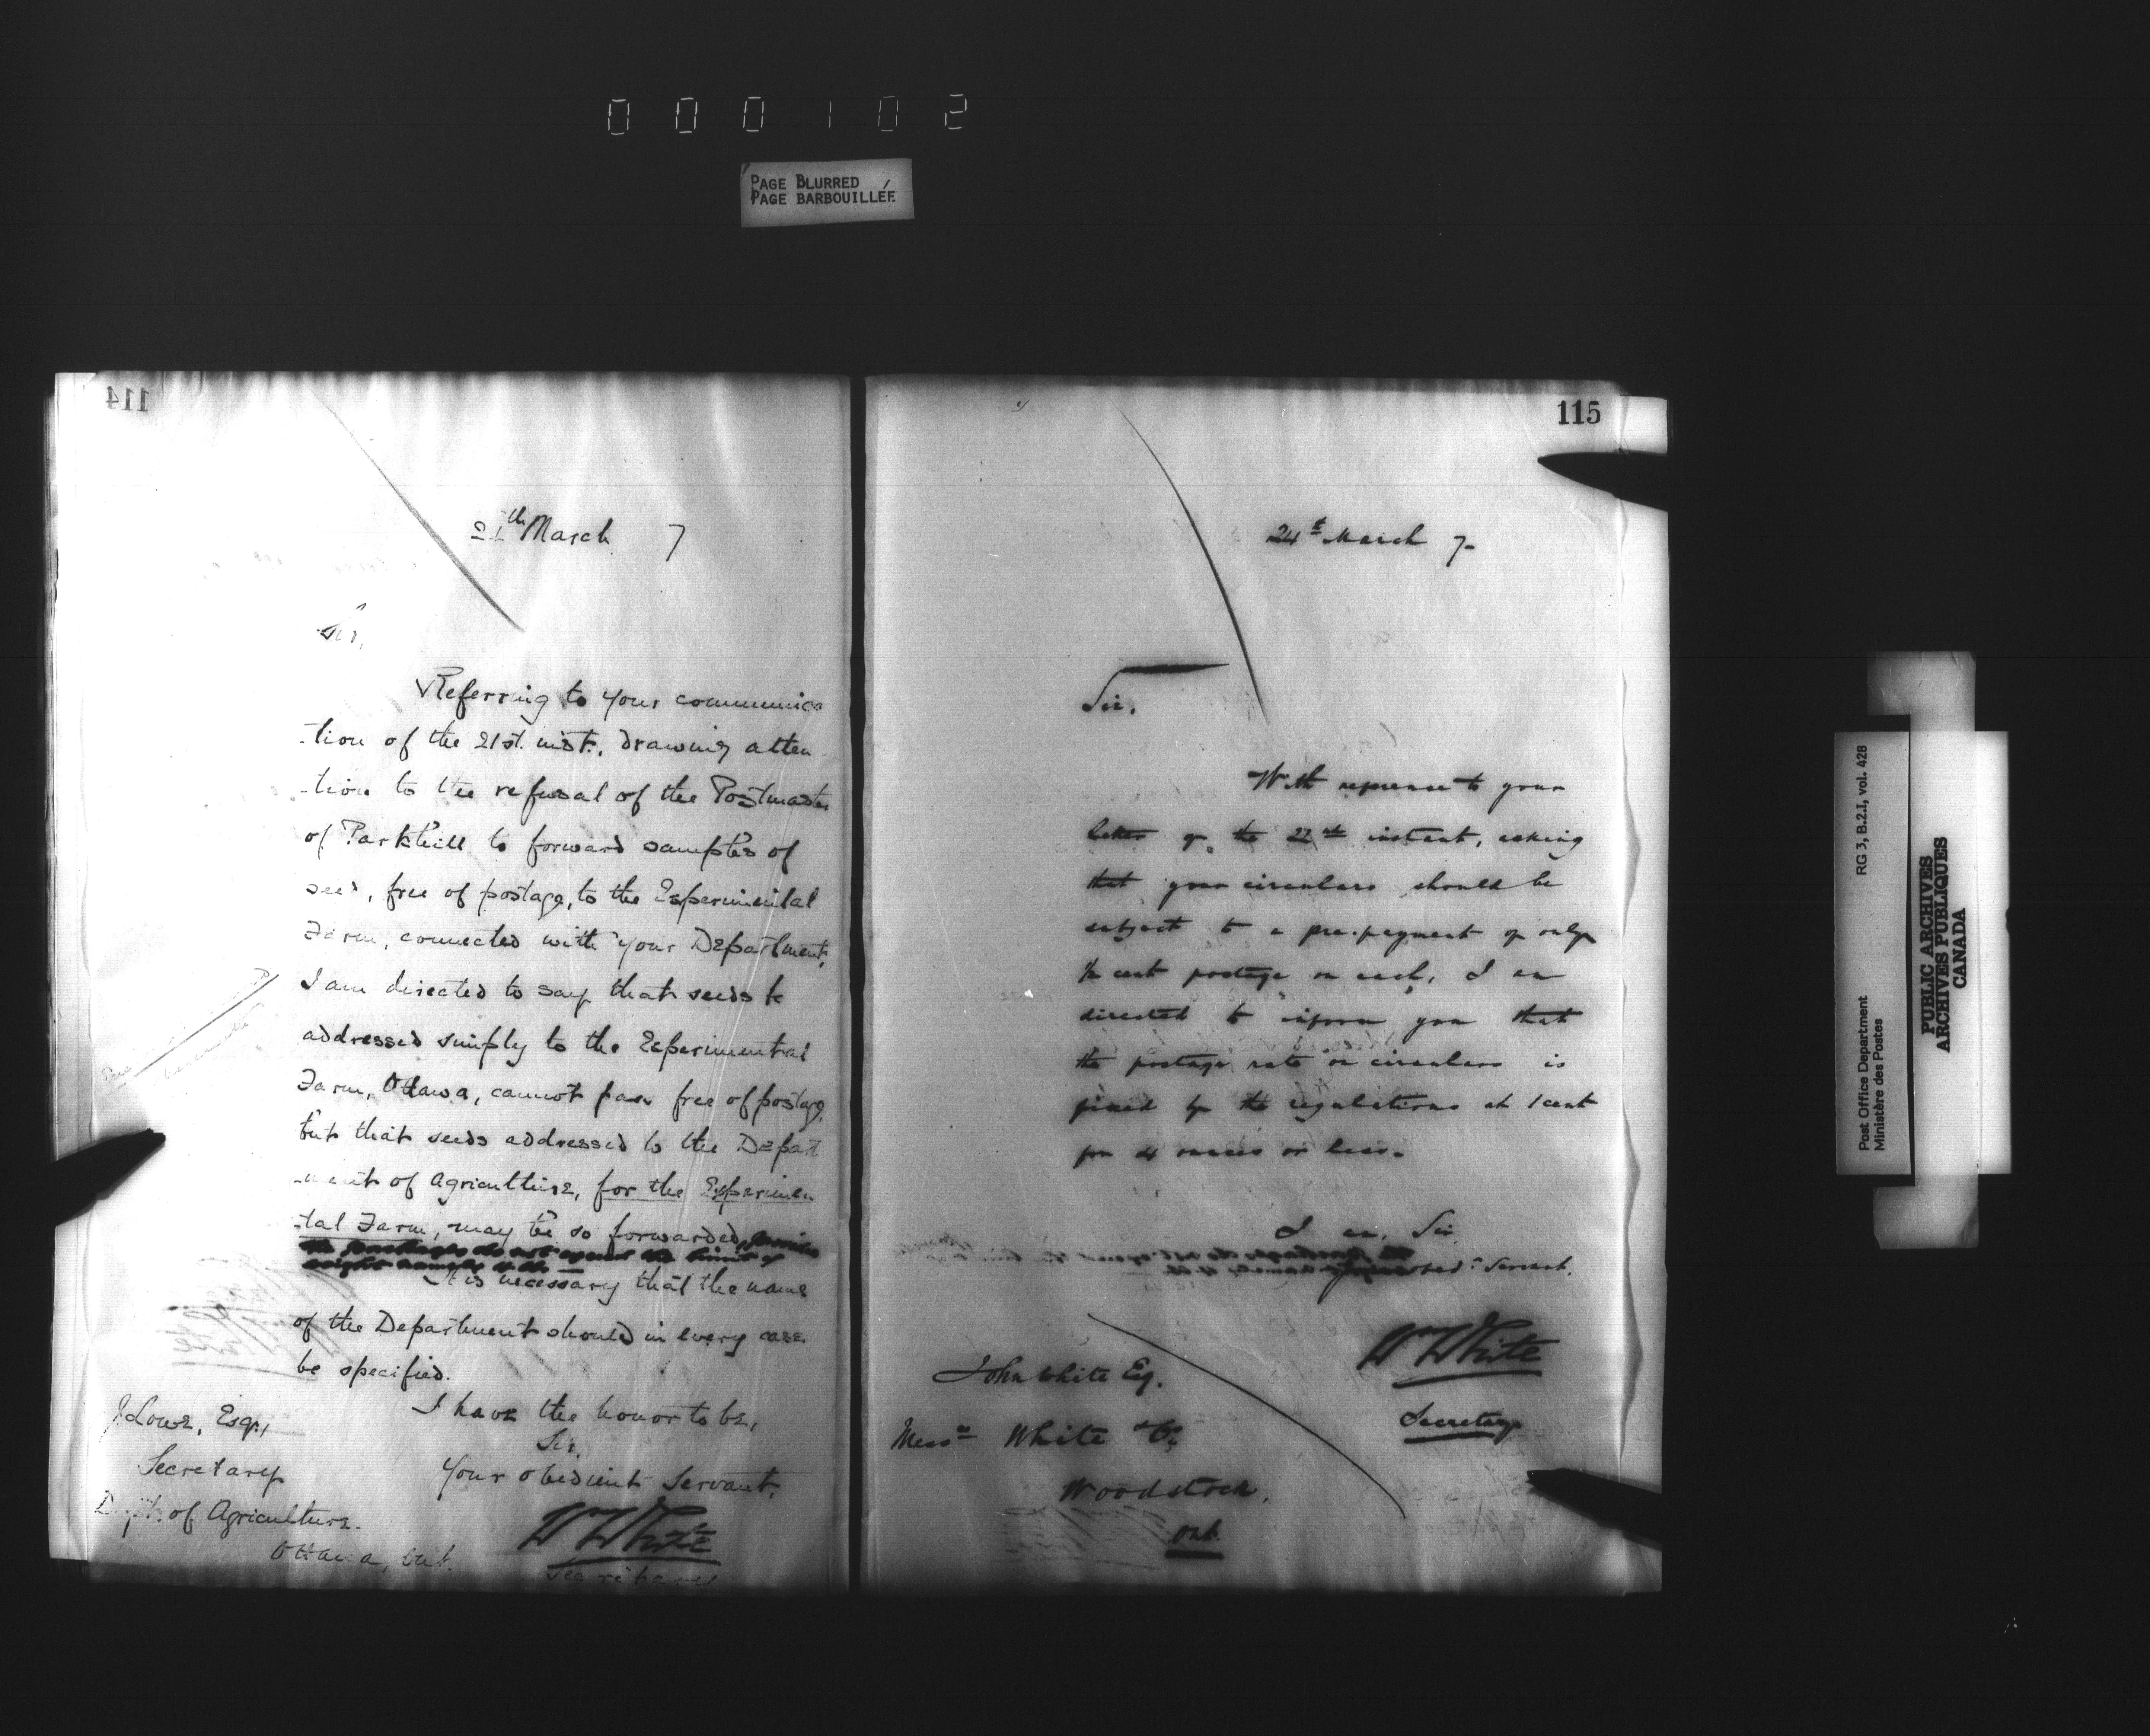 000102
PAGE BLURRED
PAGE BARBOUILLÉE
114
March 7
Sir,
Referring to your communica
-tion of the 21st. inst., drawing atten
-tion to the refusal of the Postmaster
of Parkhill to forward samples of
seed, free of postage, to the Experimental
Farm, connected with your Department,
I am directed to say that seeds
addressed simply to the Experimental
Farm, Ottawa, cannot pass free of postage,
but that seeds addressed to the Depart
-ment of Agriculture, for the Experimen
-tal Farm, may be so forwarded, provided
the packages do not exceed the limit of
weight namely
It is necessary that the name
of the Department should in every case
be specified.
I have the honor to be,
Sir,
Your obedient Servant,
WWhite
Secretary
J. Lowe, Esq.,
Secretary
Dept. of Agriculture.
Ottawa, Ont.
115
24th March 7-
Sir,
With reference to your
letter of the 22nd instant, asking
that your circulars should be
subject to a pre-payment of only
½ cent postage on each, I am
directed to inform you that
the postage rate on circulars is
fixed by the regulations at 1 cent
for 4 ounces or less.
I am, Sir
Your obedt Servant.
WWhite
Secretary
John White Esq.
Messrs White & Co
Woodstock,
Ont.
Post Office Department
Ministère des Postes
RG 3, B.2.I, vol. 428
PUBLIC ARCHIVES
ARCHIVES PUBLIQUES
CANADA